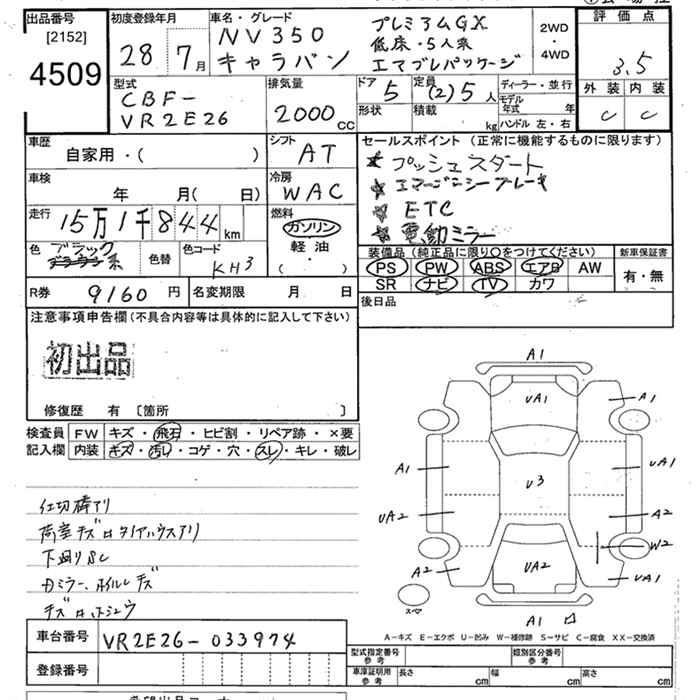 出品番号
[2152]
4509
初度登録年月
28年 7月
車名・グレード
NV350
キャラバン
プレミアムGX
低床・5人乗
エマブレパッケージ
2WD
・
4WD
評価点
3.5
外装 内装
C C
型式
CBF-
VR2E26
排気量
2000cc
ドア 5
形状
定員 (2)5人
積載 kg
ディーラー・並行
モデル年式 年
ハンドル 左・右
車歴
自家用・( )
シフト
AT
セールスポイント(正常に機能するものに限ります)
プッシュスタート
エマージェンシーブレーキ
ETC
電動ミラー
車検
年 月( 日)
冷房
WAC
走行
15万1千844km
燃料
ガソリン
軽油
( ・ )
色
ブラック
系
色替
色コード
KH3
装備品(純正品に限り○をつけてください)
PS PW ABS エアB AW
SR ナビ TV カワ
新車保証書
有・無
R券 9160円
名変期限 月 日
後日品
注意事項申告欄(不具合内容等は具体的に記入して下さい)
初出品
修復歴 有 〔箇所 〕
検査員
記入欄
FW キズ・飛石・ヒビ割・リペア跡・×要
内装 キズ・汚レ・コゲ・穴・スレ・キレ・破レ
仕切棒アリ
下廻りSC
A1
UA1
A1
A1
U3
UA1
UA2
A2
W2
A2
UA2
UA1
スペア
A1
A－キズ E－エクボ U－凹み W－補修跡 S－サビ C－腐食 XX－交換済
車台番号 VR2E26-033974
登録番号
型式指定番号
参考
類別区分番号
参考
車庫証明用
参考
長さ cm
幅 cm
高さ cm